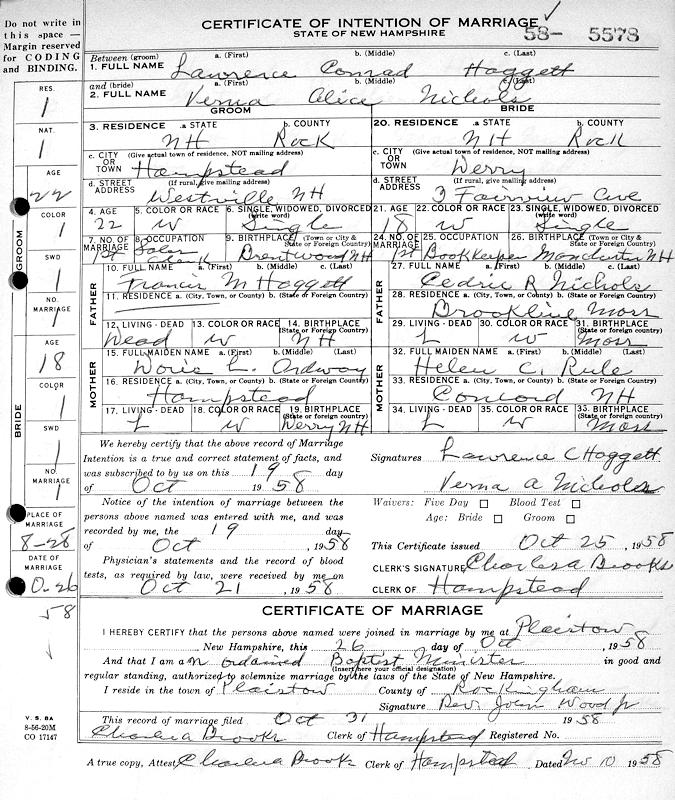 Do not write in
this space —
Margin reserved
for CODING
and BINDING.
RES.
1
NAT.
1
AGE
22
COLOR
1
SWD
1
NO.
MARRIAGE
1
GROOM
AGE
18
COLOR
1
SWD
1
NO
MARRIAGE
1
BRIDE
PLACE OF
MARRIAGE
8-28
DATE OF
MARRIAGE
0-26
58
V. S. 8A
8-56-20M
CO 17147
CERTIFICATE OF INTENTION OF MARRIAGE
STATE OF NEW HAMPSHIRE
58- 5578
Between (groom) a. (First) b. (Middle) c. (Last)
1. FULL NAME Lawrence Conrad Hoggett
and (bride) a. (First) b. (Middle) c. (Last)
2. FULL NAME Verna Alice Nichols
GROOM BRIDE
3. RESIDENCE .a STATE b. COUNTY
NH Rock
c. CITY OR TOWN (Give actual town of residence, NOT mailing address)
Hampstead
d. STREET ADDRESS (If rural, give mailing address)
Westville NH
4. AGE 5. COLOR OR RACE 6. SINGLE, WIDOWED, DIVORCED (write word)
22 W Single
7. NO. OF MARRIAGE 8. OCCUPATION 9. BIRTHPLACE (Town or City & State or Foreign Country)
1st Clerk Brentwood NH
FATHER
10. FULL NAME a. (First) b. (Middle) c. (Last)
Francis M Hoggett
11. RESIDENCE a. (City, Town, or County) b. (State or Foreign Country)
12. LIVING - DEAD 13. COLOR OR RACE 14. BIRTHPLACE (State or Foreign Country)
Dead W NH
MOTHER
15. FULL MAIDEN NAME a. (First) b. (Middle) (Last)
Doris L. Ordway
16. RESIDENCE a. (City, Town, or County) b. (State or Foreign Country)
Hampstead
17. LIVING - DEAD 18. COLOR OR RACE 19. BIRTHPLACE (State or Foreign Country)
L W Derry NH
20. RESIDENCE .a STATE b. COUNTY
NH Rock
c. CITY OR TOWN (Give actual town of residence, NOT mailing address)
Derry
d. STREET ADDRESS (If rural, give mailing address)
3 Fairview Ave
21. AGE 22. COLOR OR RACE 23. SINGLE, WIDOWED, DIVORCED (write word)
18 W Single
24. NO. OF MARRIAGE 25. OCCUPATION 26. BIRTHPLACE (Town or City & State or Foreign Country)
1st Bookkeeper Manchester NH
FATHER
27. FULL NAME a. (First) b. (Middle) c. (Last)
Cedric R Nichols
28. RESIDENCE a. (City, Town, or County) b. (State or Foreign Country)
Brookline Mass
29. LIVING - DEAD 30. COLOR OR RACE 31. BIRTHPLACE (State or Foreign Country)
L W Mass
MOTHER
32. FULL MAIDEN NAME a. (First) b. (Middle) (Last)
Helen C. Rule
33. RESIDENCE a. (City, Town, or County) b. (State or Foreign Country)
Concord NH
34. LIVING - DEAD 35. COLOR OR RACE BIRTHPLACE (State or Foreign Country)
L W Mass
We hereby certify that the above record of Marriage
Intention is a true and correct statement of facts, and
was subscribed to by us on this 19 day
of Oct 19 58
Signatures Lawrence C Hoggett
Verna A Nichols
Notice of the intention of marriage between the
persons above named was entered with me, and was
recorded by me, the 19 day
of Oct , 19 58
Waivers: Five Day Blood Test
Age: Bride Groom
This Certificate issued Oct 25 , 19 58
Physician's statements and the record of blood
tests, as required by law, were received by me on
Oct 21 , 19 58
CLERK'S SIGNATURE Charles A Brooks
CLERK OF Hampstead
CERTIFICATE OF MARRIAGE
I HEREBY CERTIFY that the persons above named were joined in marriage by me at Plaistow
New Hampshire, this 26 day of Oct , 19 58
And that I am a n ordained Baptist Minister in good and
(Insert here your official designation)
regular standing, authorized to solemnize marriage by the laws of the State of New Hampshire.
I reside in the town of Plaistow County of Rockingham
Signature Rev. John Wood Jr
This record of marriage filed Oct 31 19 58
Charles A Brooks Clerk of Hampstead Registered No.
A true copy, Attest Charles A Brooks Clerk of Hampstead Dated Nov 10 , 19 58